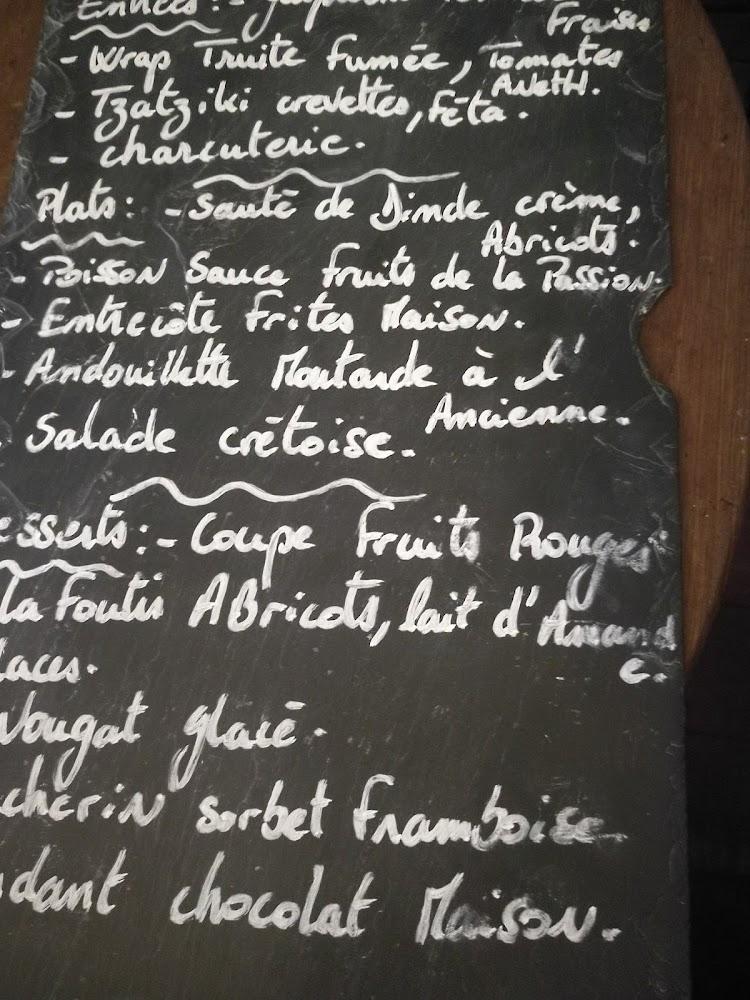 Entrées :-
Fraises
- Wrap Truite fumée, Tomates
Aneth.
- Tzatziki crevettes, Féta.
- charcuterie.
Plats: - Sauté de Dinde crème,
Abricots.
- Poisson Sauce fruits de la Passion.
- Entrecôte frites Maison.
- Andouillette Moutarde à l'
Ancienne.
Salade crétoise.
esserts :- Coupe Fruits Rouges
la Foutis Abricots, lait d'Amand
e.
laces.
Nougat glacé.
cherin sorbet framboise
dant chocolat Maison.